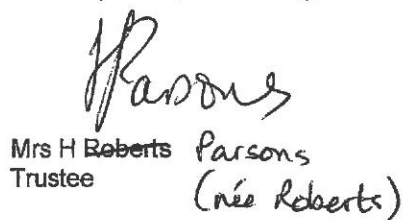 HParsons
Mrs H Roberts Parsons
Trustee
(née Roberts)